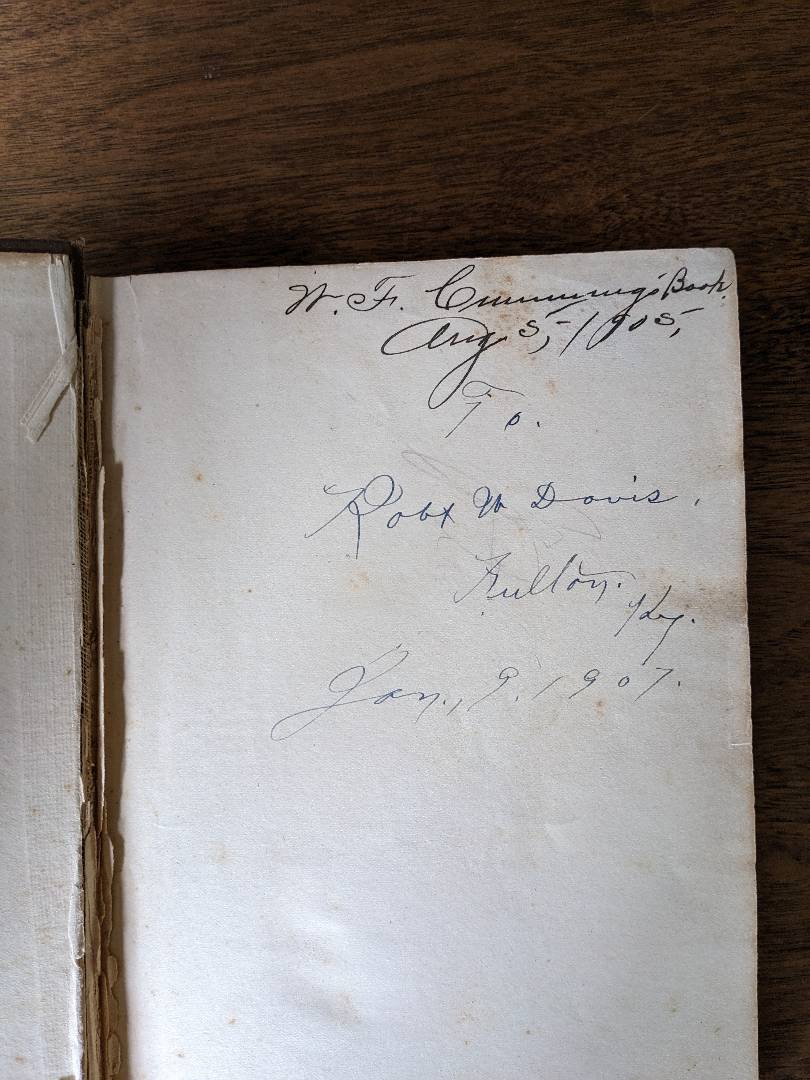 W. F. Cummings' Book.
Aug 5, 1905,
To.
Robt W Davis.
Fulton.
Ky.
Jan., 9. 1907.